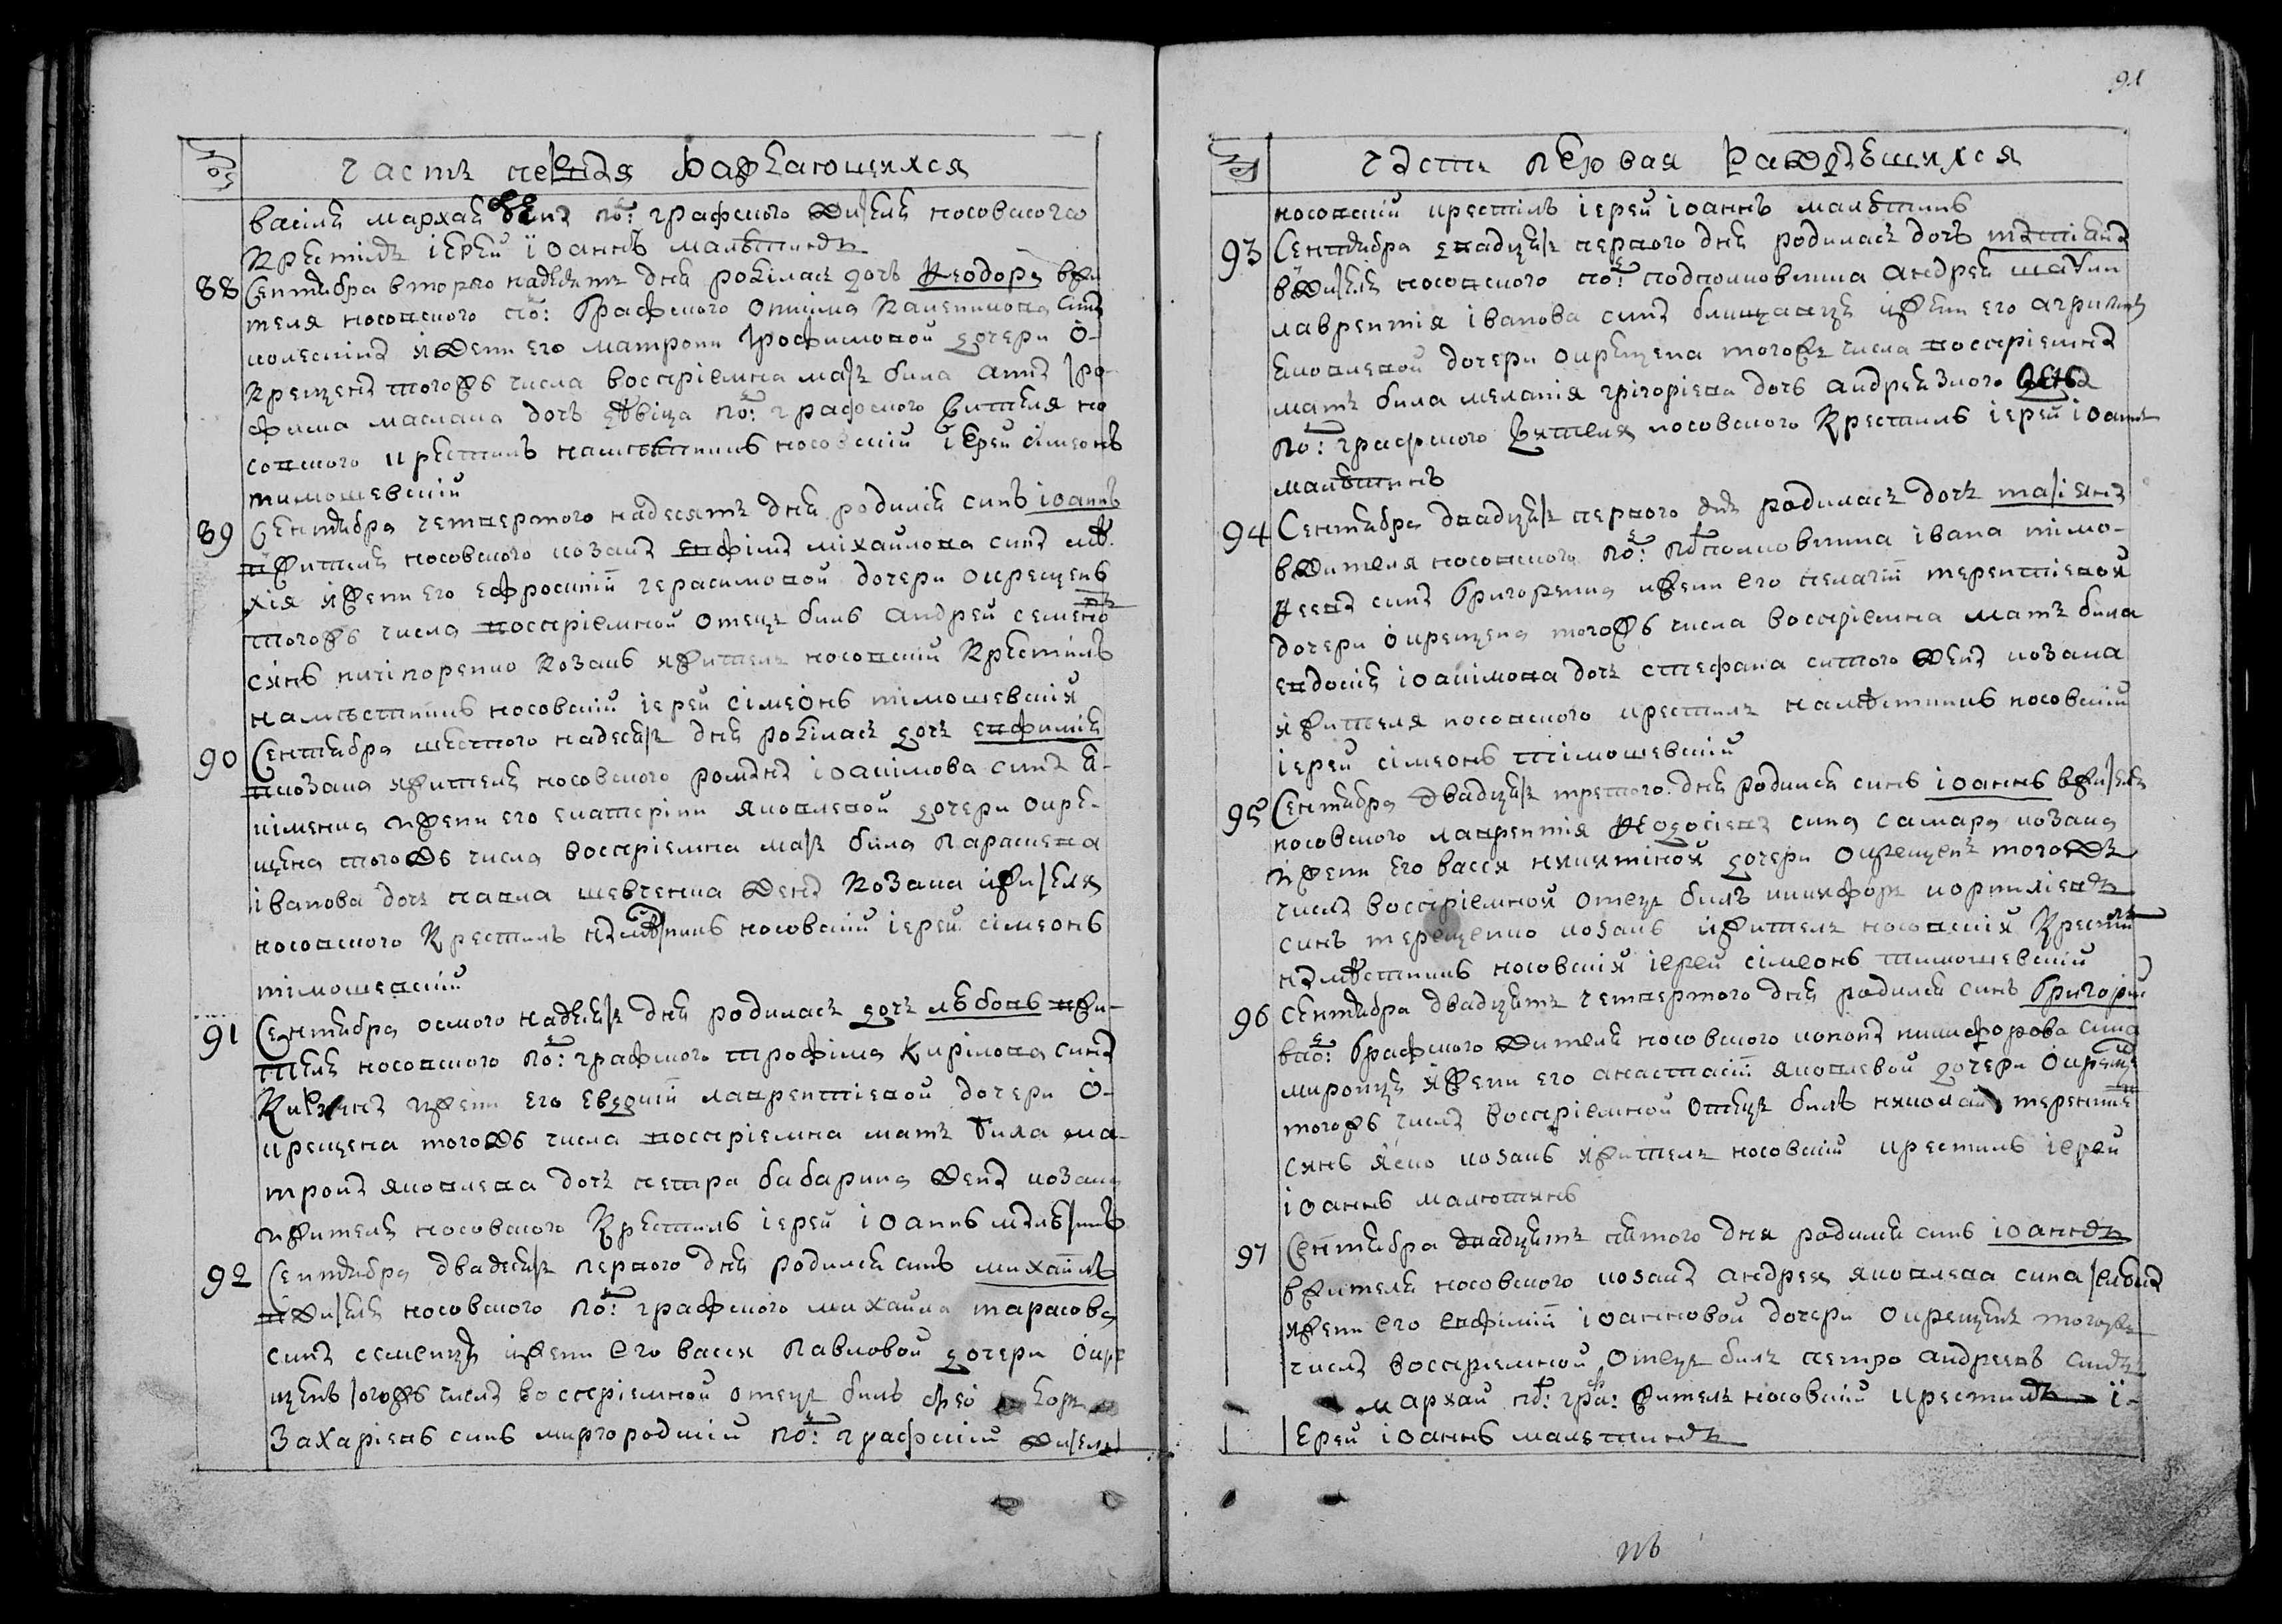 часть первая раждающихся
василя мархая жена под: графского жителя носовского
Крестилъ іерей Іоаннъ малютинъ
88 Сентября второго надесять дня родилась дочь Феодора в жи
теля носовского под: графского
колесника и жени его матрони трофимовой дочери о-
крещена тогожъ числа восприемна мать била анна тро-
фима маслака дочь девица под: графского жителя но
совского крестилъ намѣстникъ носовскій іерей сімеонъ
тимошевскій
89 Сентября четвертого надесять дня родился синъ іоаннъ
в жителя носовского козака евфима міхайлова сина
хія и жени его ефросиніи герасимовой дочери окрещенъ
тогожъ числа восприемной отецъ билъ андрей семено
синъ ничіпоренко козакъ житель носовскій Крестилъ
намѣстникъ носовскій іерей сімеонъ тімошевскій
90 Сентября шестого надесять дня родилась дочь евфимія
в козака жителя носовского романа іоакімова сина я-
кіменка и жени его екатеріни яковлевой дочери окре-
щена тогожъ числа восприемна мать била параскева
іванова дочь павла шевченка жена козака жителя
носовского Крестилъ намѣстникъ носовскій іерей сімеонъ
тімошевскій
91 Сентября осмого надесять дня родилась дочь любовъ в жи-
теля носовского под: графского трофіма Кирілова сина
и жени его евдокіи лаврентіевой дочери о-
крещена тогожъ числа восприемна мать била ма-
трона яковлева дочь петра бабарика жена козака
жителя носовского Крестилъ іерей іоаннъ малютинъ
92 Сентября двадесять первого дня родился синъ михаилъ
в жителя носовского под: графского михайла тарасова
сина семенца и жени его васси павловой дочери окре
щенъ тогожъ числа восприемной отецъ билъ
Захаріевъ синъ миргородскій под: графскій житель
91
часть первая раждающихся
носовскій крестилъ іерей іоаннъ малютинъ
93 Сентября двадцять первого дня родилась дочь татіана
в жителя носовского под: подполковника андрея
лаврентія іванова сина и жени его агрипини
яковлевой дочери окрещена тогожъ числа восприемна
мать била меланія григоріева дочь андрея жена
под: графского жителя носовского Крестилъ іерей іоаннъ
малютинъ
94 Сентября двадцять первого дня родилась дочь татіяна
в жителя носовского под: подполковника івана тімо-
феева сина григоренка и жени его пелагіи терентіевой
дочери окрещена тогожъ числа восприемна мать била
евдокія іоакімова дочь стефана ситого жена козака
жителя носовского крестилъ намѣстникъ носовскій
іерей сімеонъ тімошевскій
95 Сентября двадцять третого дня родился синъ іоаннъ в жителя
носовского лаврентія Феодосіева сина самара козака
и жени его васси никитіной дочери окрещенъ тогожъ
числа восприемной отецъ билъ никифоръ корниліевъ
синъ терещенко козакъ житель носовскій Крестилъ
намѣстникъ носовскій іерей сімеонъ тимошевскій
96 Сентября двадцять четвертого дня родился синъ григорій
в под: графского жителя носовского конона никифорова сина
миронца и жени его анастасіи яковлевой дочери окрещенъ
тогожъ числа восприемной отецъ билъ николай терентіе
синъ яско козакъ житель носовскій крестилъ іерей
іоаннъ малютинъ
97 Сентября двадцять пятого дня родился синъ іоаннъ
в жителя носовского козака андрея яковлева сина
и жени его евфиміи іоанновой дочери окрещенъ тогожъ
числа восприемной отецъ билъ петро андреевъ синъ
мархай под: граф: житель носовскій крестилъ і-
ерей іоаннъ малютинъ